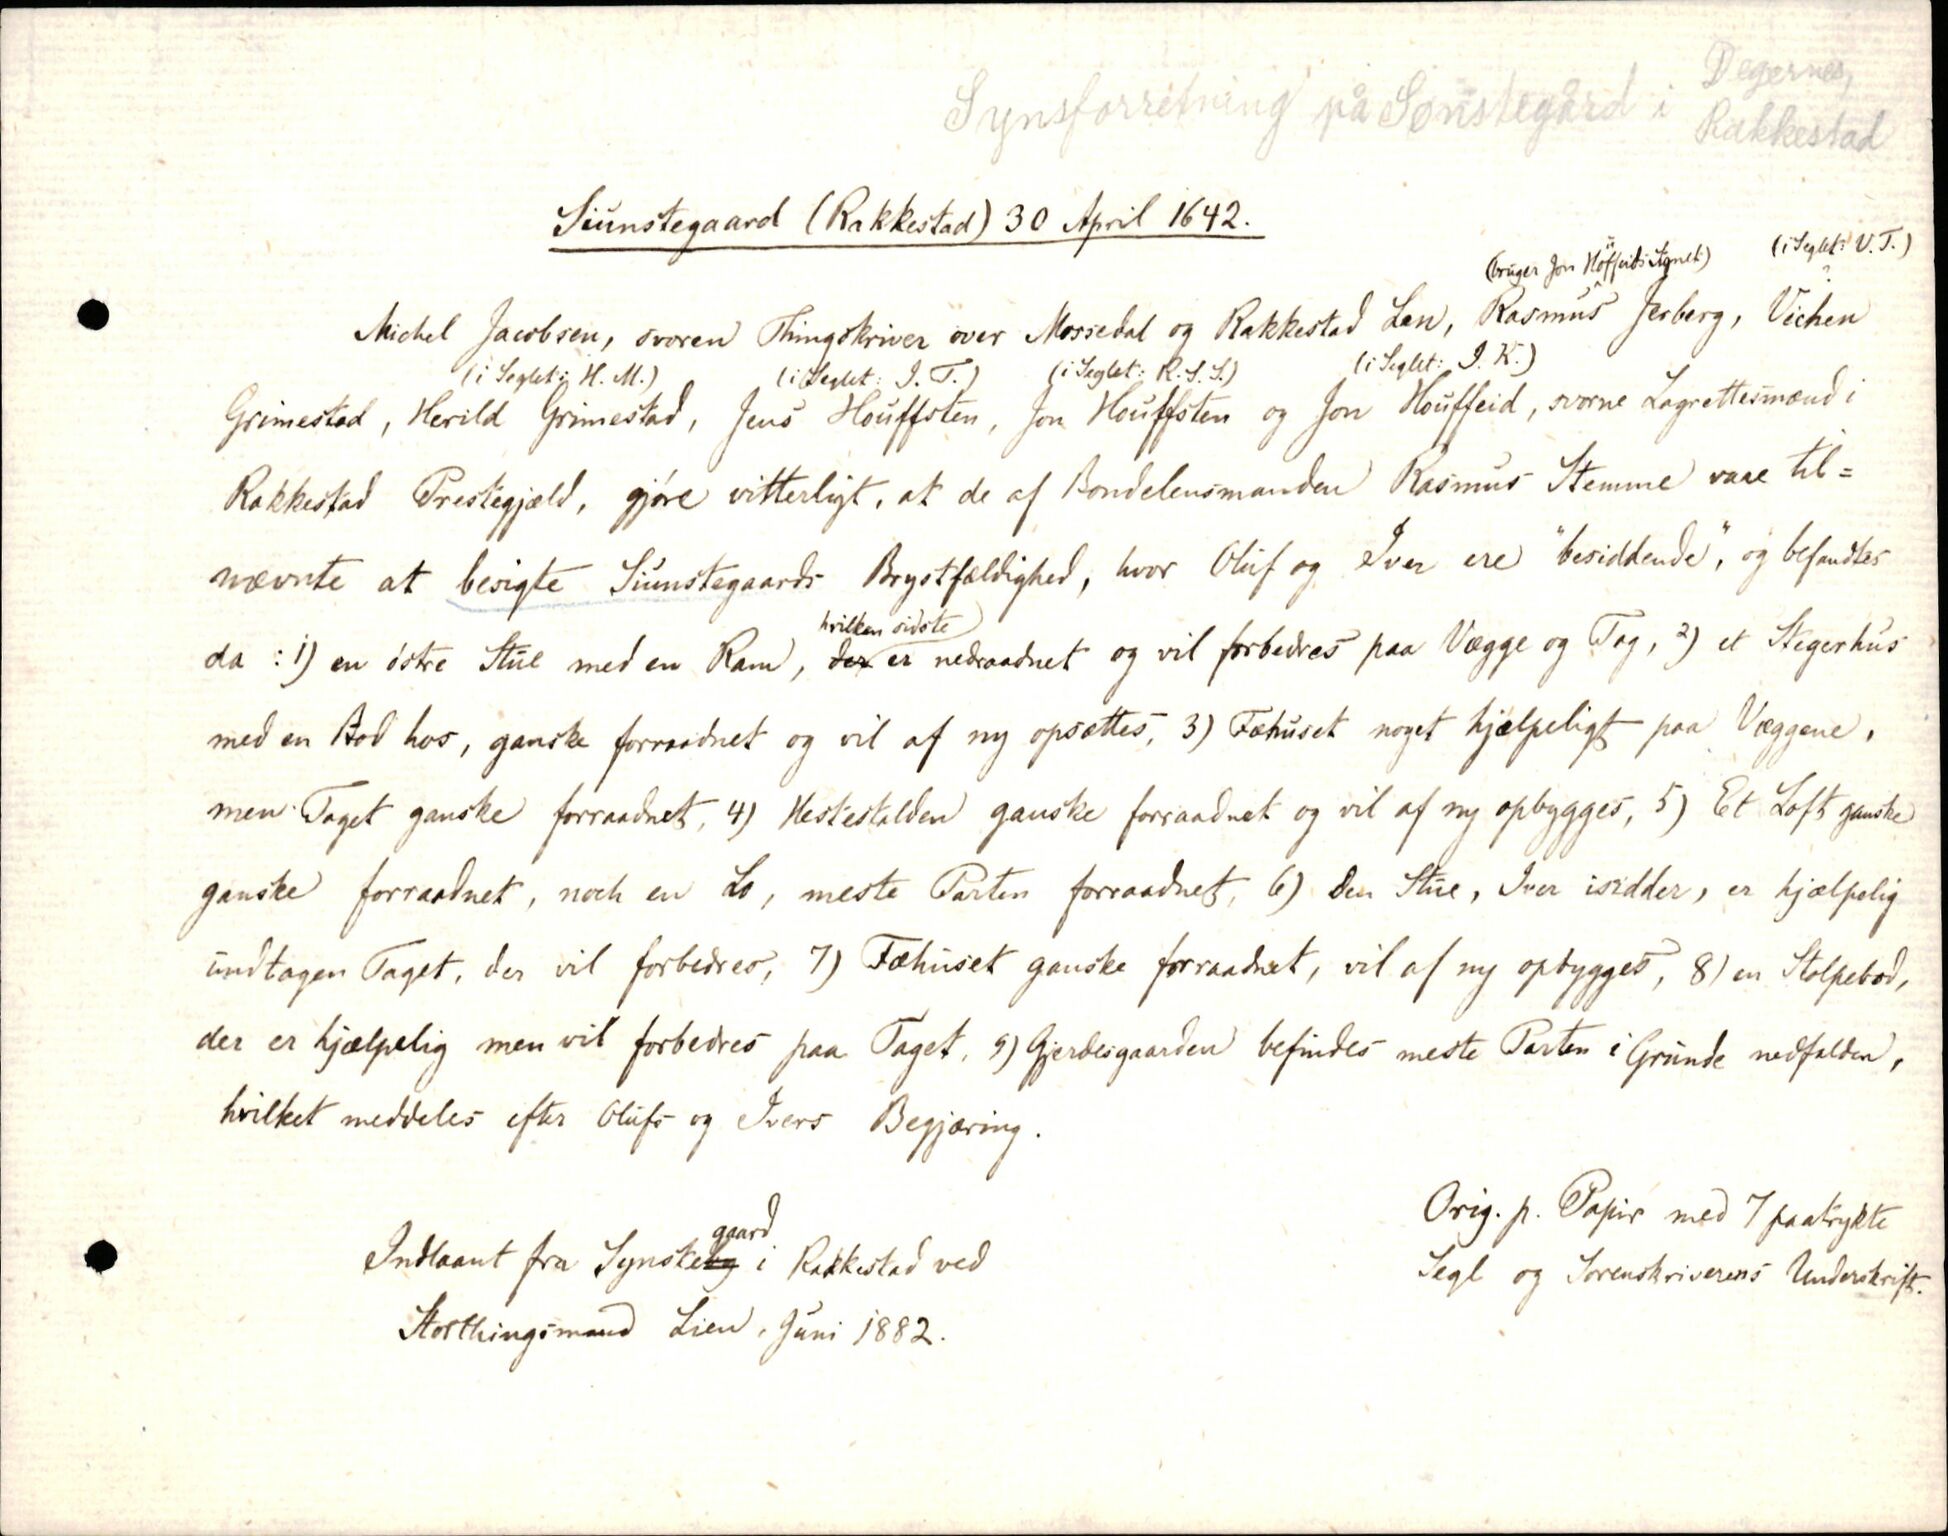 Synsforretning på Sønstegård i Degernes,
Rakkestad
Siunstegaard (Rakkestad) 30 April 1642.
(bruger Jon Höffeids Signet) (i Seglet: V. T.)
Michel Jacobsen, svoren Thingskriver over Mossedal og Rakkestad Len, Rasmus Jerberg, Vichen
(i Seglet: H. M.) (i Seglet: J. T.) (i Seglet: R. S. S.) (i Seglet: J. K.)
Grimestad, Herild Grimestad, Jens Houffsten, Jon Houffsten og Jon Houffeid, svorne Lagrettesmænd i
Rakkestad Prestegjæld, gjøre vitterligt, at de af Bondelensmanden Rasmus Stemme vare til=
nævnte at besigte Siunstegaards Brystfældighed, hvor Oluf og Iver ere "besiddende", og befandtes
hvilken sidste
da : 1) en østre Stue med en Ram, der er nedraadnet og vil forbedres paa Vægge og Tag, 2) et Stegerhus
med en Bod hos, ganske forraadnet og vil af ny opsættes, 3) Fæhuset noget hjælpeligt paa Væggene,
men Taget ganske forraadnet, 4) Hestestalden ganske forraadnet og vil af ny opbygges, 5) Et Loft ganske
ganske forraadnet, noch en Lo, meste Parten forraadnet, 6) Den Stue, Iver isidder, er hjælpelig
undtagen Taget, der vil forbedres, 7) Fæhuset ganske forraadnet, vil af ny opbygges, 8) en Stolpebod,
der er hjælpelig men vil forbedres paa Taget, 9) Gjerdesgaarden befindes meste Parten i Grunde nedfalden,
hvilket meddeles efter Olufs og Ivers Begjæring.
Orig. p. Papir med 7 paatrykte
Segl og Sorenskriverens Underskrift.
gaard
Indlaant fra Synskeby i Rakkestad ved
Storthingsmand Lien, Juni 1882.